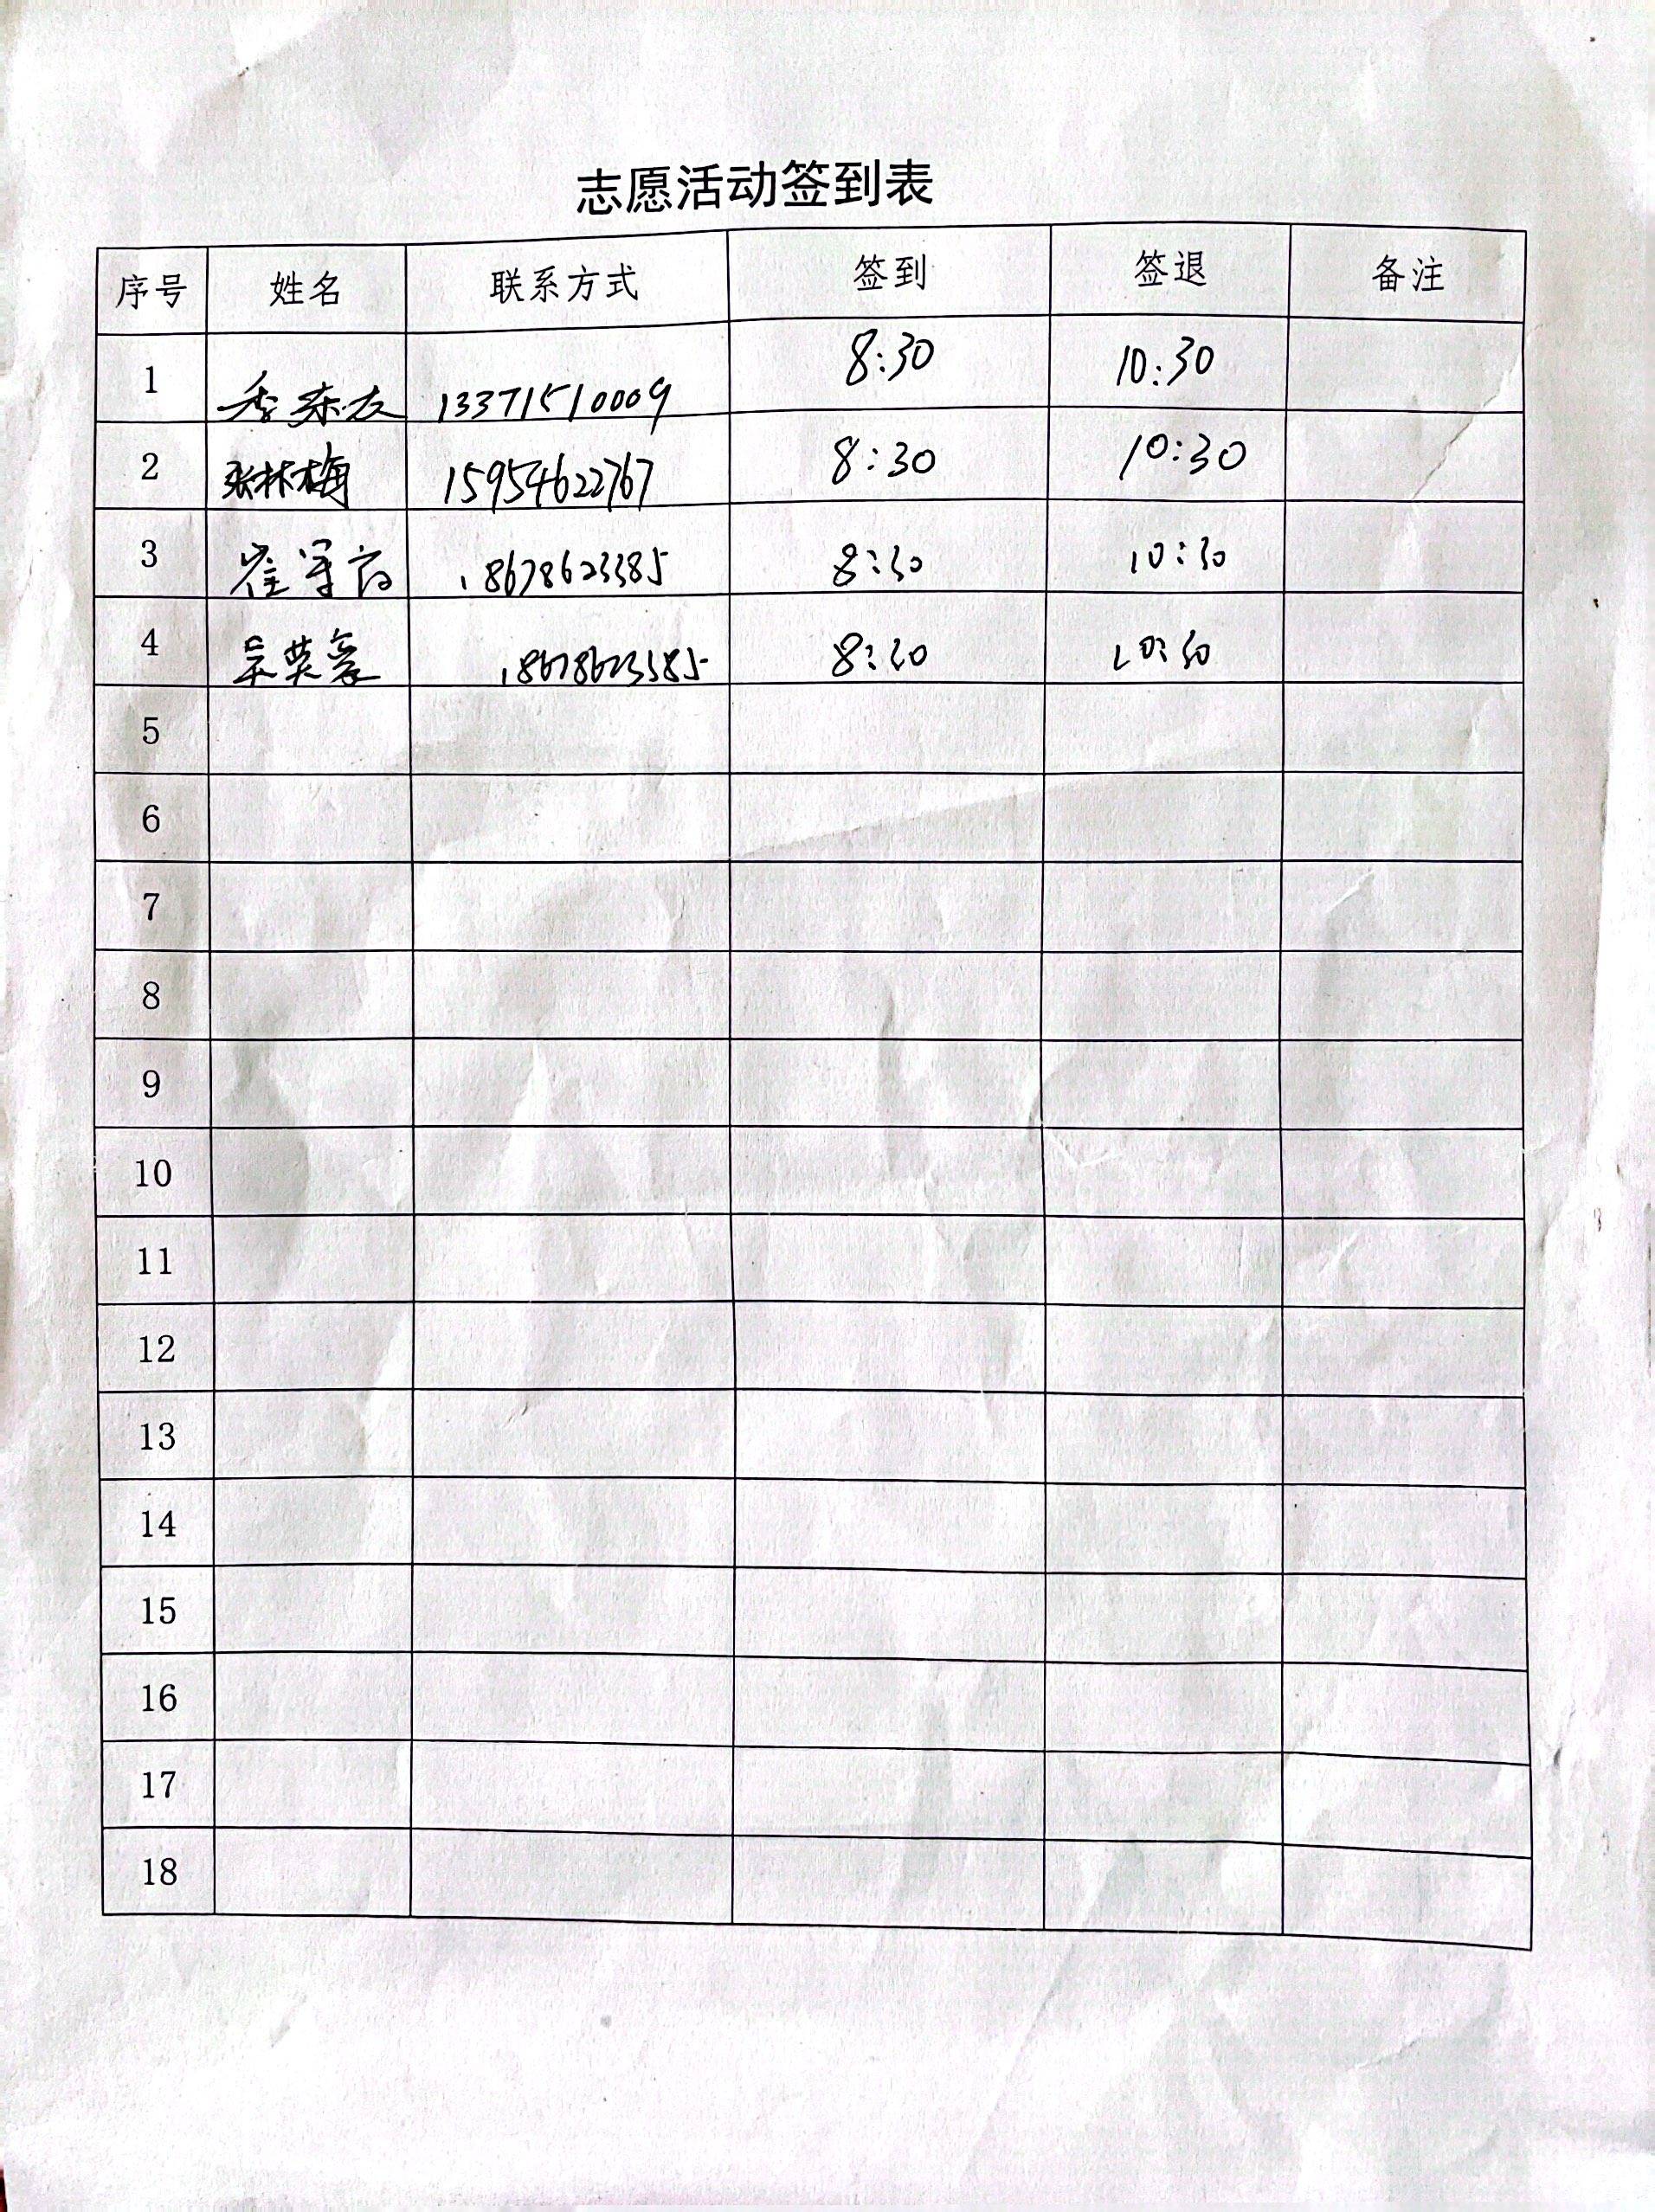 志愿活动签到表
序号 姓名 联系方式 签到 签退 备注
1 季东友 13371510009 8:30 10:30
2 张林梅 15954622767 8:30 10:30
3 崔军 18678623385 8:30 10:30
4 英爱 18678623385 8:30 10:30
5
6
7
8
9
10
11
12
13
14
15
16
17
18